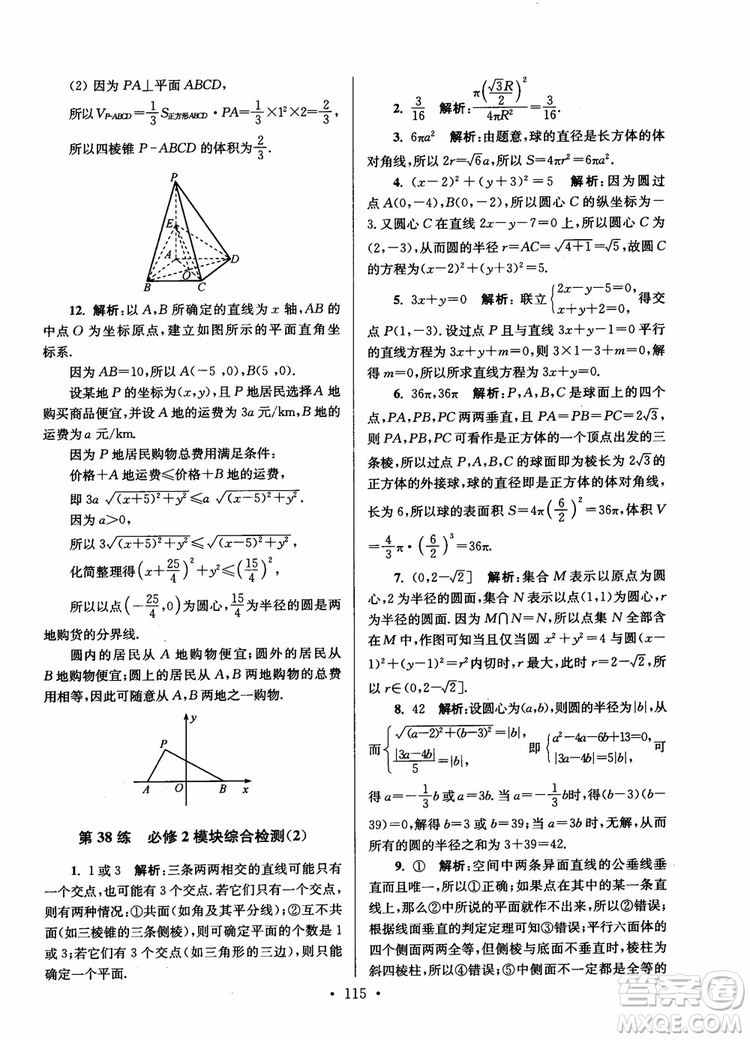 (2) 因为 PA⊥平面 ABCD,
所以 V_{P-ABCD}=\frac{1}{3}S_{正方形ABCD}·PA=\frac{1}{3}×1²×2=\frac{2}{3},
所以四棱锥 P-ABCD 的体积为\frac{2}{3}.
P
E
A
D
O
B
C
12. 解析:以 A,B 所确定的直线为 x 轴,AB 的
中点 O 为坐标原点,建立如图所示的平面直角坐
标系.
因为 AB=10,所以 A(-5,0),B(5,0).
设某地 P 的坐标为(x,y),且 P 地居民选择 A 地
购买商品便宜,并设 A 地的运费为 3a 元/km,B 地的
运费为 a 元/km.
因为 P 地居民购物总费用满足条件:
价格+A 地运费≤价格+B 地的运费,
即 3a \sqrt{(x+5)²+y²}≤a \sqrt{(x-5)²+y²}.
因为 a>0,
所以 3\sqrt{(x+5)²+y²}≤\sqrt{(x-5)²+y²},
化简整理得(x+\frac{25}{4})²+y²≤(\frac{15}{4})²,
所以以点(-\frac{25}{4},0)为圆心,\frac{15}{4}为半径的圆是两
地购货的分界线.
圆内的居民从 A 地购物便宜,圆外的居民从 B
地购物便宜;圆上的居民从 A,B 两地购物的总费
用相等,因此可随意从 A,B 两地之一购物.
y
P
A O B x
第 38 练 必修 2 模块综合检测(2)
1. 1 或 3 解析:三条两两相交的直线可能只有
一个交点,也可能有 3 个交点.若它们只有一个交点,
则有两种情况:①共面(如角及其平分线);②互不共
面(如三棱锥的三条侧棱),它们可确定 1 或 3 个平
面;若它们有 3 个交点(如三角形的三边),则只能
确定一个平面.
2. \frac{3}{16} 解析:\frac{π(\frac{\sqrt{3}R}{2})²}{4πR²}=\frac{3}{16}.
3. 6πa² 解析:由题意,球的直径是长方体的体
对角线,所以 2r=\sqrt{6}a,所以 S=4πr²=6πa².
4. (x-2)²+(y+3)²=5 解析:因为圆过
点 A(0,-4),B(0,-2),所以圆心 C 的纵坐标为-
3.又圆心 C 在直线 2x-y-7=0 上,所以圆心为 C
(2,-3),所以圆的半径 r=AC=\sqrt{4+1}=\sqrt{5},故圆 C
的方程为(x-2)²+(y+3)²=5.
5. 3x+y=0 解析:联立{2x-y-5=0, x+y+2=0, 得交
点 P(1,-3).设过点 P 且与直线 3x+y-1=0 平行
的直线方程为 3x+y+m=0,则 3×1-3+m=0,
解得 m=0,所以所求直线方程为 3x+y=0.
6. 36π,36π 解析:P,A,B,C 是球面上的四个
点,PA,PB,PC 两两垂直,且 PA=PB=PC=2\sqrt{3},
所以 PA,PB,PC 可看作是正方体的一个顶点出发的三
条棱,所以过点 P,A,B,C 的球面即为棱长为 2\sqrt{3}的
正方体的外接球,球的直径即是正方体的体对角线,
长为 6,所以球的表面积 S=4π(\frac{6}{2})²=36π,体积 V
=\frac{4}{3}π·(\frac{6}{2})³=36π.
7. (0,2-\sqrt{2}] 解析:集合 M 表示以原点为圆
心,2 为半径的圆面,集合 N 表示以点(1,1)为圆心,r
为半径的圆面.因为 M∩N=N,所以集合 N 全部含
在 M 中,作图可知当圆面(x-1)²+(y-1)²=r²与
圆面 x²+y²=4 内切时,r 最大,最大为 2-\sqrt{2},所
以 r∈(0,2-\sqrt{2}].
8. 42 解析:设圆心为(a,b),则圆的半径为|b|,从
而{\sqrt{(a-2)²+(b-3)²}=|b|, \frac{|3a-4b|}{5}=|b|, 即{a²-4a-6b+13=0, |3a-4b|=5|b|,
得 a=-\frac{1}{3}b 或 a=3b.因为 a=-\frac{1}{3}b 或(b-3)(b-
39)=0,所以满足条件的圆有两个,半径为 3 或 39,
所以所有圆的半径之和为 3+39=42.
9. ① 解析:空间中两条异面直线的公垂线垂
直而且唯一,所以①正确;如果点在其中的某一条直
线上,那么过这点的平面就作不出来,所以②错误;
根据线面垂直的判定定理可知③错误;平行六面体的
四个侧面中两个对面可能与底面不垂直,棱柱为
斜四棱柱,所以④错误;⑤中侧面不一定是全等的
· 115 ·
作业精灵